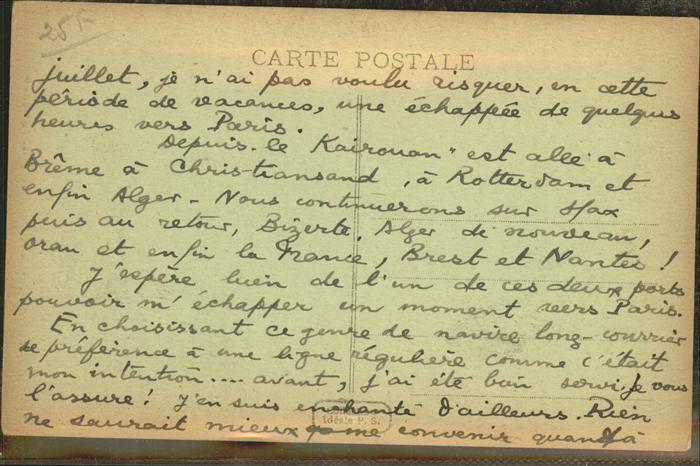 25 F
CARTE POSTALE
juillet, je n'ai pas voulu risquer, en cette
période de vacances, une échappée de quelques
heures vers Paris.
Depuis le Kairouan" est allé à
Brême à Christiansand, à Rotterdam et
enfin Alger - Nous continuerons sur Sfax
puis au retour, Bizerte, Alger de nouveau,
Oran et enfin la France, Brest et Nantes !
J'espère bien de l'un de ces deux ports
pouvoir m'échapper un moment vers Paris.
En choisissant ce genre de navire long-courrier
de préférence à une ligne régulière comme c'était
mon intention.... avant, j'ai été bien servi, je vous
l'assure ! J'en suis enchanté d'ailleurs. Rien
Idéale P. S.
ne saurait mieux me convenir quand à